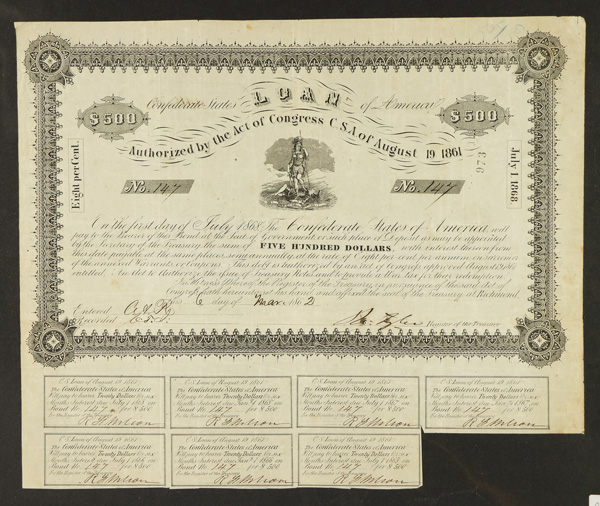 LOAN
Confederate States of America
$500 $500
Authorized by the Act of Congress C.S.A. of August 19 1861
Eight per Cent.
973
July 1 1868
No. 147 No. 147
On the first day of July 1868 The Confederate States of America will
pay to the Bearer of this Bond at the Seat of Government, or such place of Deposit as may be appointed
by the Secretary of the Treasury the sum of FIVE HUNDRED DOLLARS, with interest thereon from
this date payable at the same places, semi-annually, at the rate of Eight per Cent per annum on surrender
of the annexed Warrants, or Coupons. This debt is authorized by an act of Congress approved August 19 1861
entitled, An Act to Authorize the Issue of Treasury Notes and to provide a War Tax for their redemption.
In Witness Whereof the Register of the Treasury, in pursuance of the said Act of
Congress, hath hereunto set his hand and affixed the seal of the Treasury at Richmond,
this 6 day of Mar. 186 2
Entered
Recorded
Register of the Treasury
C.S. Loan of August 19 1861
The Confederate States of America
Will pay to bearer Twenty Dollars for six
Months Interest due July 1
Bond No. 147 for $500
R F Wilson
C.S. Loan of August 19 1861
The Confederate States of America
Will pay to bearer Twenty Dollars for six
Months Interest due Jany 1
Bond No. 147 for $500
R F Wilson
C.S. Loan of August 19 1861
The Confederate States of America
Will pay to bearer Twenty Dollars for six
Months Interest due July 1
Bond No. 147 for $500
R F Wilson
C.S. Loan of August 19 1861
The Confederate States of America
Will pay to bearer Twenty Dollars for six
Bond No. 147 for $500
R F Wilson
C.S. Loan of August 19 1861
The Confederate States of America
Will pay to bearer Twenty Dollars for six
Months Interest due July 1
Bond No. 147 for $500
R F Wilson
C.S. Loan of August 19 1861
The Confederate States of America
Will pay to bearer Twenty Dollars for six
Months Interest due Jany 1 1866 on
Bond No. 147 for $500
R F Wilson
C.S. Loan of August 19 1861
The Confederate States of America
Will pay to bearer Twenty Dollars for six
Months Interest due July 1 1865 on
Bond No. 147 for $500
R F Wilson